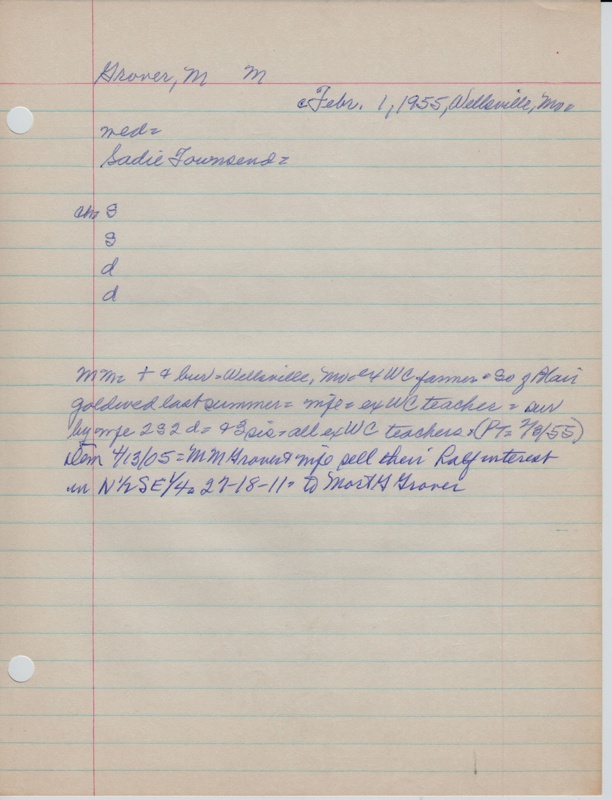 Grover, M M
Febr. 1, 1955, Wellsville, Mo=
med=
Sadie Townsend=
ch= s
s
d
d
MM= + & bur= Wellsville, Mo= ex WC farmer= So of Blair
goldwed last summer= wife= ex WC teacher= sur
by wife 2 s 2 d= & 3 sis= all ex WC teachers= (PT= 2/3/55)
Dem 4/13/05= MM Grover & wife sell their half interest
in N½ SE¼= 27-18-11= to Mort G Grover